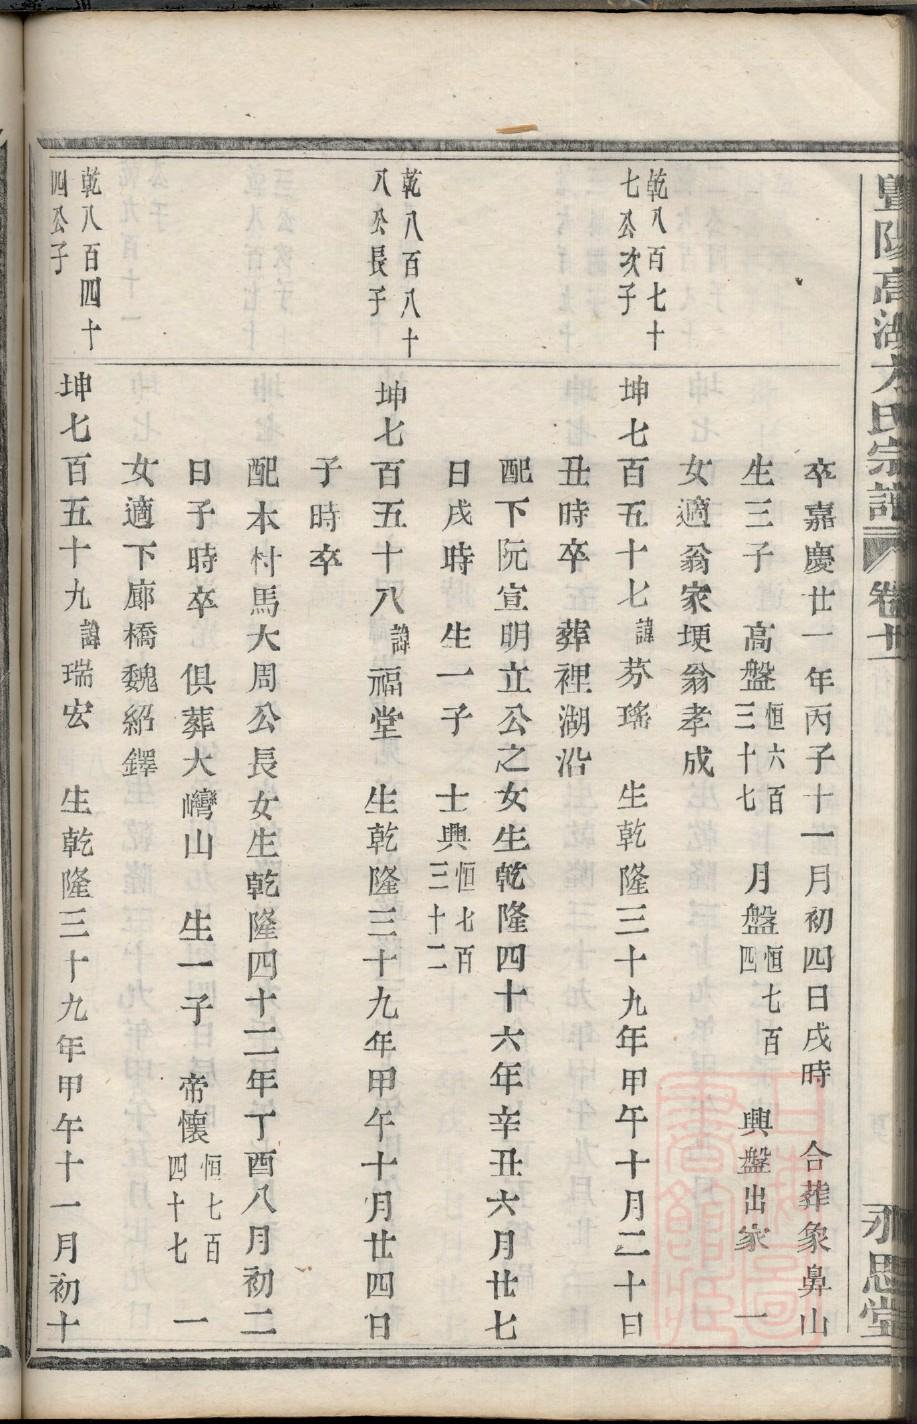 暨陽高湖方氏宗譜 卷廿二 永思堂
卒嘉慶廿一年丙子十一月初四日戌時 合葬象鼻山
生三子 高盤恒六百三十七 月盤恒七百四 興盤出家 一
女適翁家埂翁孝成
乾八百七十七公次子
坤七百五十七諱芬瑤 生乾隆三十九年甲午十月二十日
丑時卒 葬裡湖沿
配下阮宣明立公之女生乾隆四十六年辛丑六月廿七
日戌時 生一子 士興恒七百三十二
乾八百八十八公長子
坤七百五十八諱福堂 生乾隆三十九年甲午十月廿四日
子時卒
配本村馬大周公長女生乾隆四十二年丁酉八月初二
日子時卒 俱葬大巒山 生一子 帝懷恒七百四十七 一
女適下廊橋魏紹鐸
乾八百四十四公子
坤七百五十九諱瑞宏 生乾隆三十九年甲午十一月初十